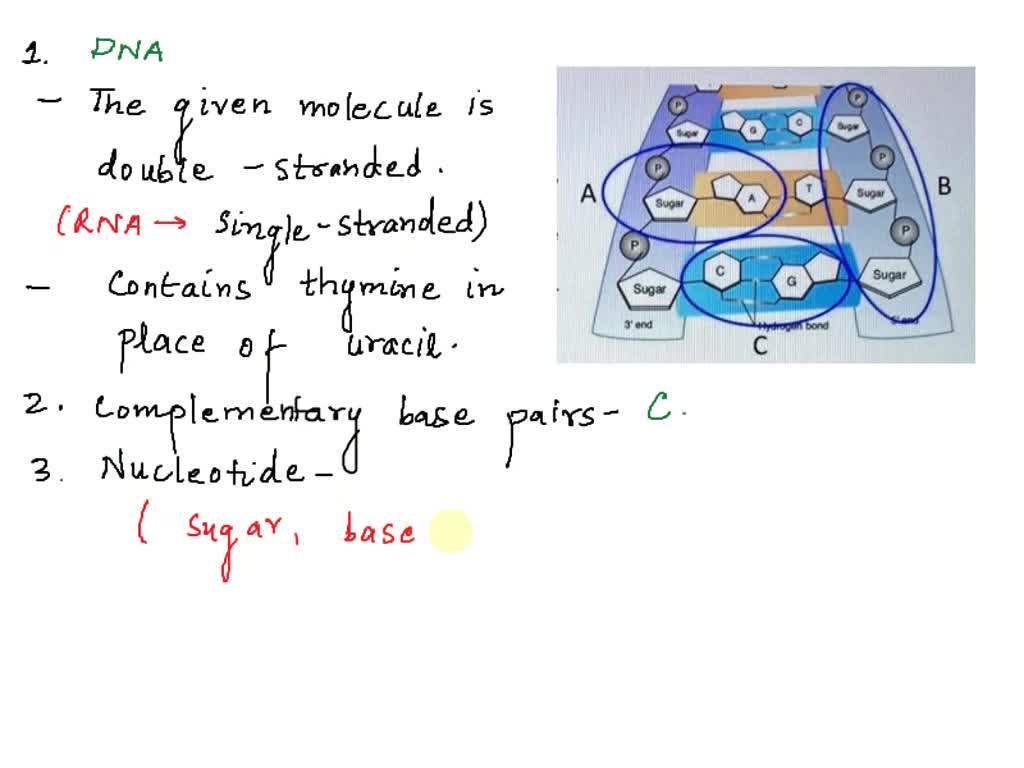 1. DNA
- The given molecule is
double-stranded.
(RNA → Single-stranded)
- Contains thymine in
place of uracil.
2. Complementary base pairs - C.
3. Nucleotide -
( Sugar, base
P P
Sugar G C Sugar
P P
A Sugar A T Sugar B
P P
Sugar C G Sugar
3' end Hydrogen bond 5' end
C